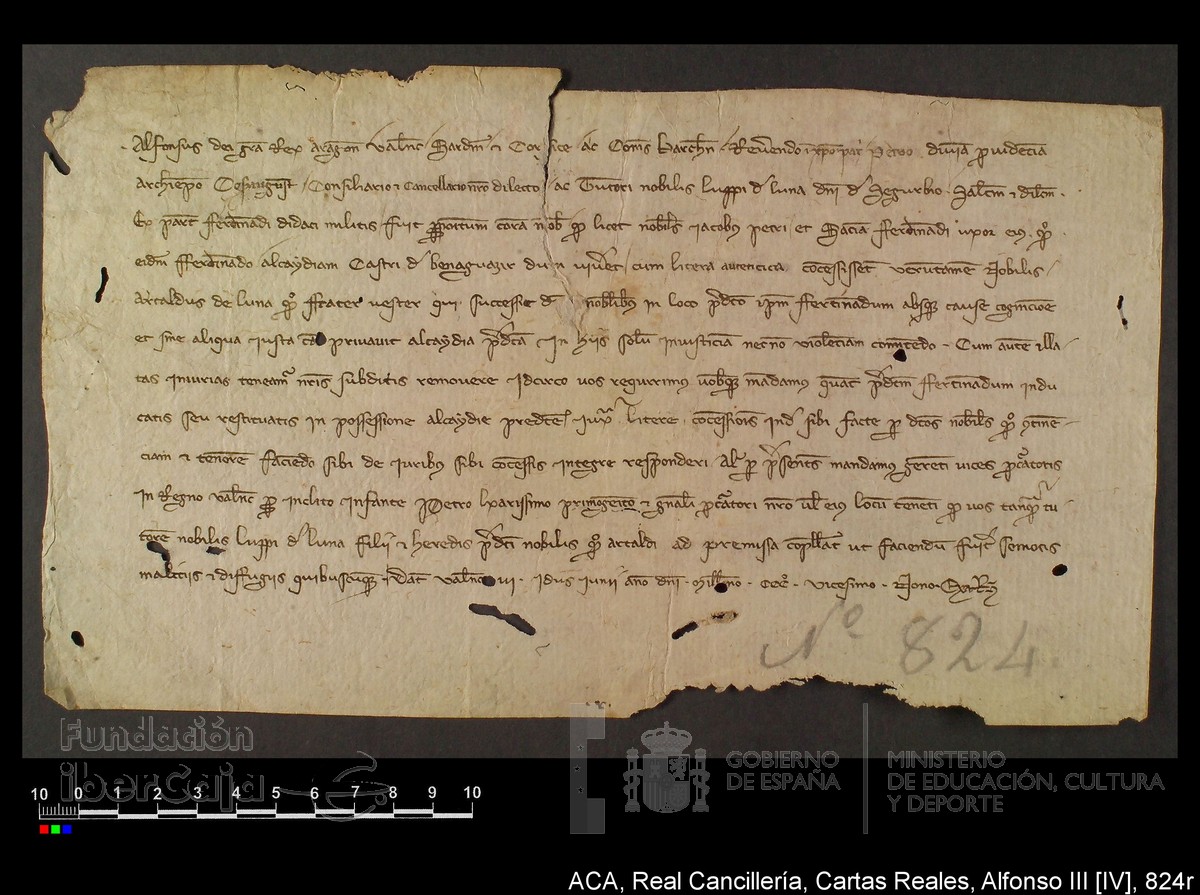 Alfonsus dei gra Rex aragon valenc Sardin et Corsice ac Comes barchn Reverendo in xpo patri Petro divina providencia
Archiepo Cesaraugust Consiliario et Cancellario nro dilecto ac Tutori nobilis luppi de luna dni de Segurbio Salutem et dilcom
Ex part fferdinandi didaci militis fuit ppositum coram nob qd licet nobiles iacobus petri et Sancia fferdinandi uxor eius qo
eidm fferdinando alcaydiam Castri de benaguazir cum litera autentica concessissent verutamen Nobilis
Artaldus de luna qo ffrater vester qui successit nobilibus in loco pdco ipm fferdinandum absq cause cognicione
et sine aliqua iusta privavit alcaydia pdca in hiis solum iniusticiam necno violenciam comitendo Cum autem illa
tas iniurias teneamur nris subditis removere Idcirco vos requirimus vobisq mandamus quat pdcm fferdinandum indu
catis seu restituatis in possessione alcaydie predicte iuxta litere concessionis inde sibi facte p dcos nobiles qo contine
ciam et tenorem faciendo sibi de iuribus sibi concessis integre responderi Al p psentes mandamus gerenti vices pcuratoris
in Regno valenc p inclito Infante Petro karissimo primogenito et gnali pcuratori nro vel eius locum tenenti qd vos tanqm tu
torem nobilis luppi de luna filii et heredis pdci nobilis qo artaldi ad premissa compellat ut faciendum fuit remotis
maliciis et diffugiis quibuscumq Dat valnc vi idus iunii anno dni millmo ccco vicesimo Nono
Nº 824
Fundación
iberCaja
10 0 1 2 3 4 5 6 7 8 9 10
GOBIERNO
DE ESPAÑA
MINISTERIO
DE EDUCACIÓN, CULTURA
Y DEPORTE
ACA, Real Cancillería, Cartas Reales, Alfonso III [IV], 824r